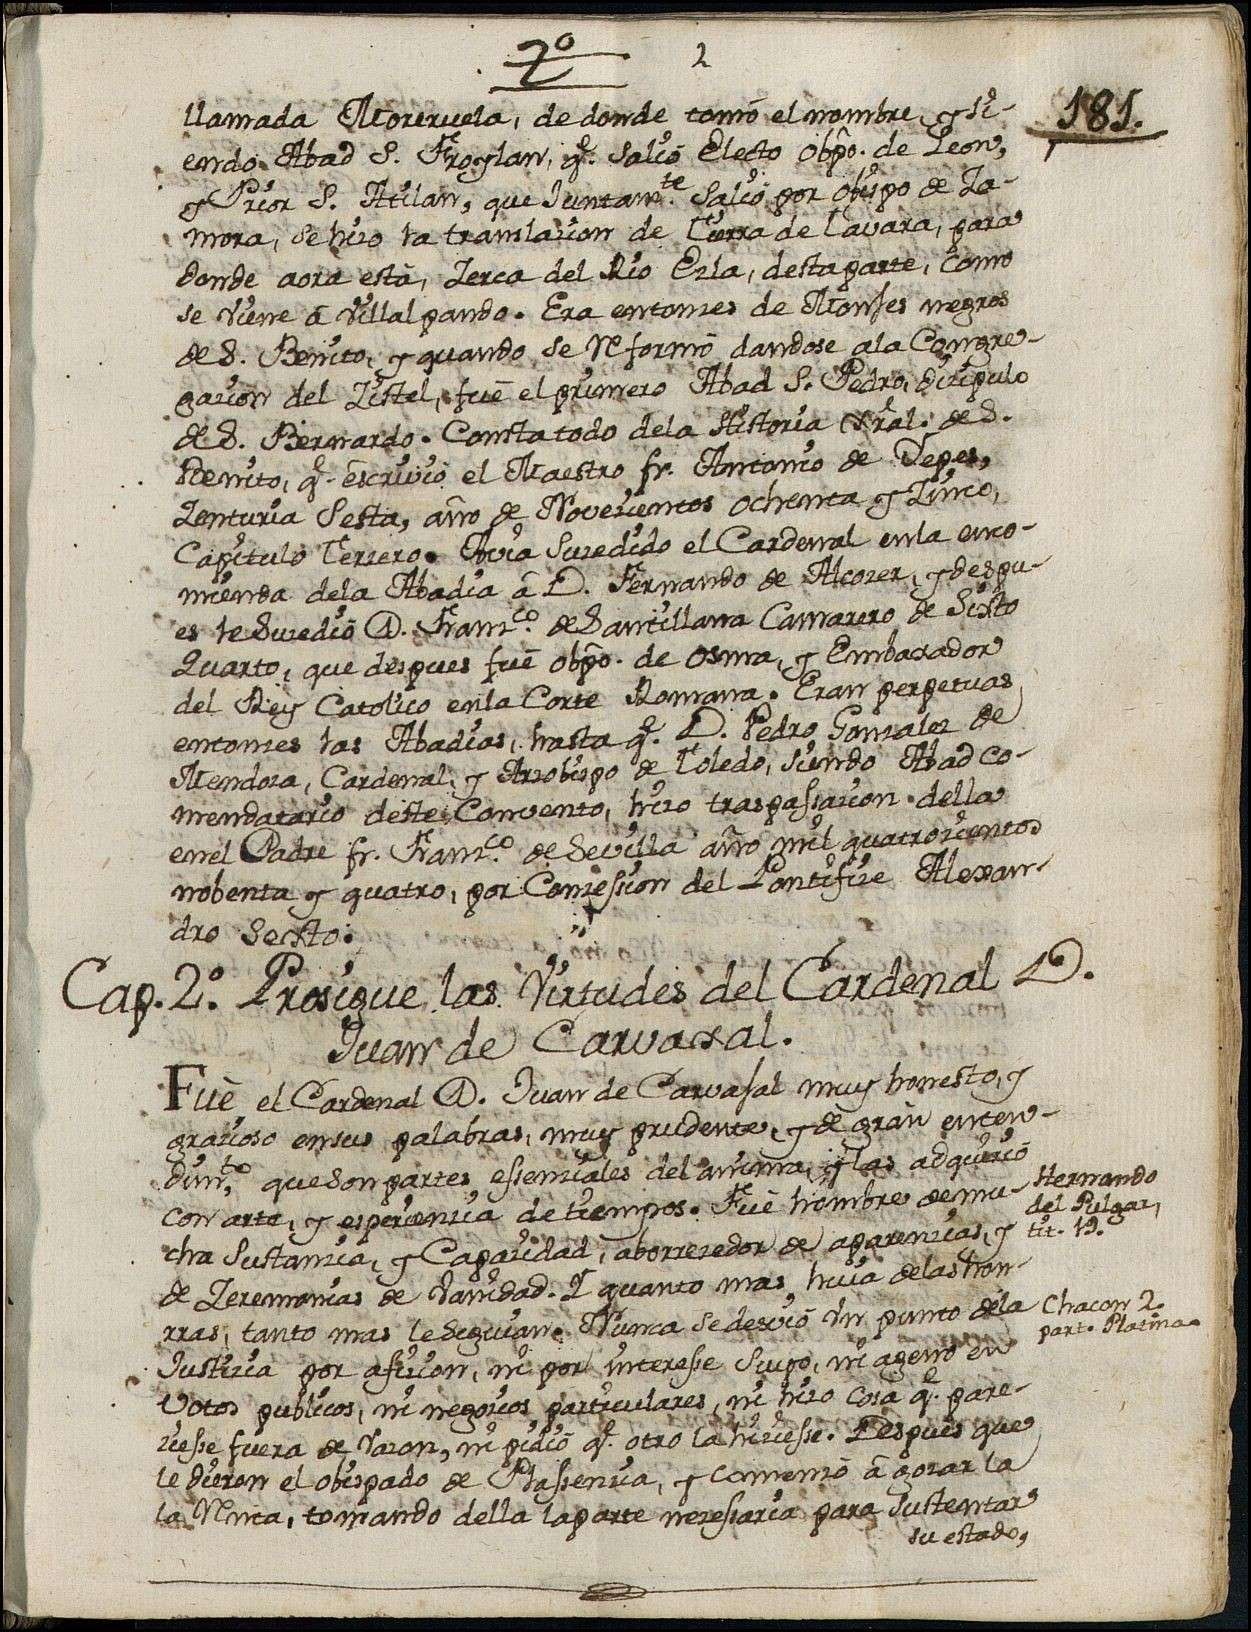 2º 2
181.
llamada Moreruela, de donde tomó el nombre, y si-
endo Abad S. Froylan, q.e salió Electo Obpo. de Leon,
y Prior S. Atilan, que Juntam.te salió por Obispo de Za-
mora, se hizo la translacion de tierra de Tavara, para
donde aora está, Zerca del Rio Ezla, desta parte, como
se viene á Villalpando. Era entonzes de Monjes negros
de S. Benito, y quando se Reformó dandose ala Congre-
gacion del Zistel, fué el primero Abad S. Pedro, dicipulo
de S. Bernardo. Consta todo dela Historia Gral. de S.
Benito, q.e escrivió el Maestro fr. Antonio de Yepes,
Zenturia Sesta, año de Novecientos ochenta y Zinco,
Capitulo Terzero. Avia Suzedido el Cardenal enla enco-
mienda dela Abadia á D. Fernando de Alcozer, y despu-
es le Suzedió D. Fran.co de Santillana Camarero de Sixto
Quarto, que despues fué obpo. de Osma, y Embaxador
del Rey Catolico enla Corte Romana. Eran perpetuas
entonzes las Abadias, hasta q.e D. Pedro Gonzalez de
Mendoza, Cardenal, y Arzobispo de Toledo, siendo Abad Co-
mendatario deste Convento, hizo traspassacion della
en el Padre fr. Fran.co de Sevilla año mil quatrozientos
nobenta y quatro, por Conzession del Pontifize Alexan-
dro Sexto.
Cap. 2.º Prosigue las Virtudes del Cardenal D.
Juan de Carvaxal.
Fué el Cardenal D. Juan de Carvajal muy honesto, y
gracioso ensus palabras, muy prudente, y de gran enten-
dim.to, que son partes essenziales del anima, y las adquirió
con arte, y esperienzia de tiempos. Fué hombre de mu-
cha Sustanzia, y Capazidad, aborrezedor de aparenzias, y
de Zeremonias de Vanidad. Y quanto mas huia delas hon-
rras, tanto mas le Seguian. Nunca se desvió vn punto dela
Justizia por afizion, ni por interesse Suyo, ni ageno en
Votos publicos, ni negozios particulares, ni hizo Cosa q.e pare-
ziesse fuera de razon, ni pidió q.e otro la hiziesse. Despues que
le dieron el obispado de Plassenzia, y Comenzó á gozar la
la Renta, tomando della laparte nezessaria para Sustentar
su estado,
Hernando
del Pulgar,
tit. 19.
Chacon 2.
part. Platina.